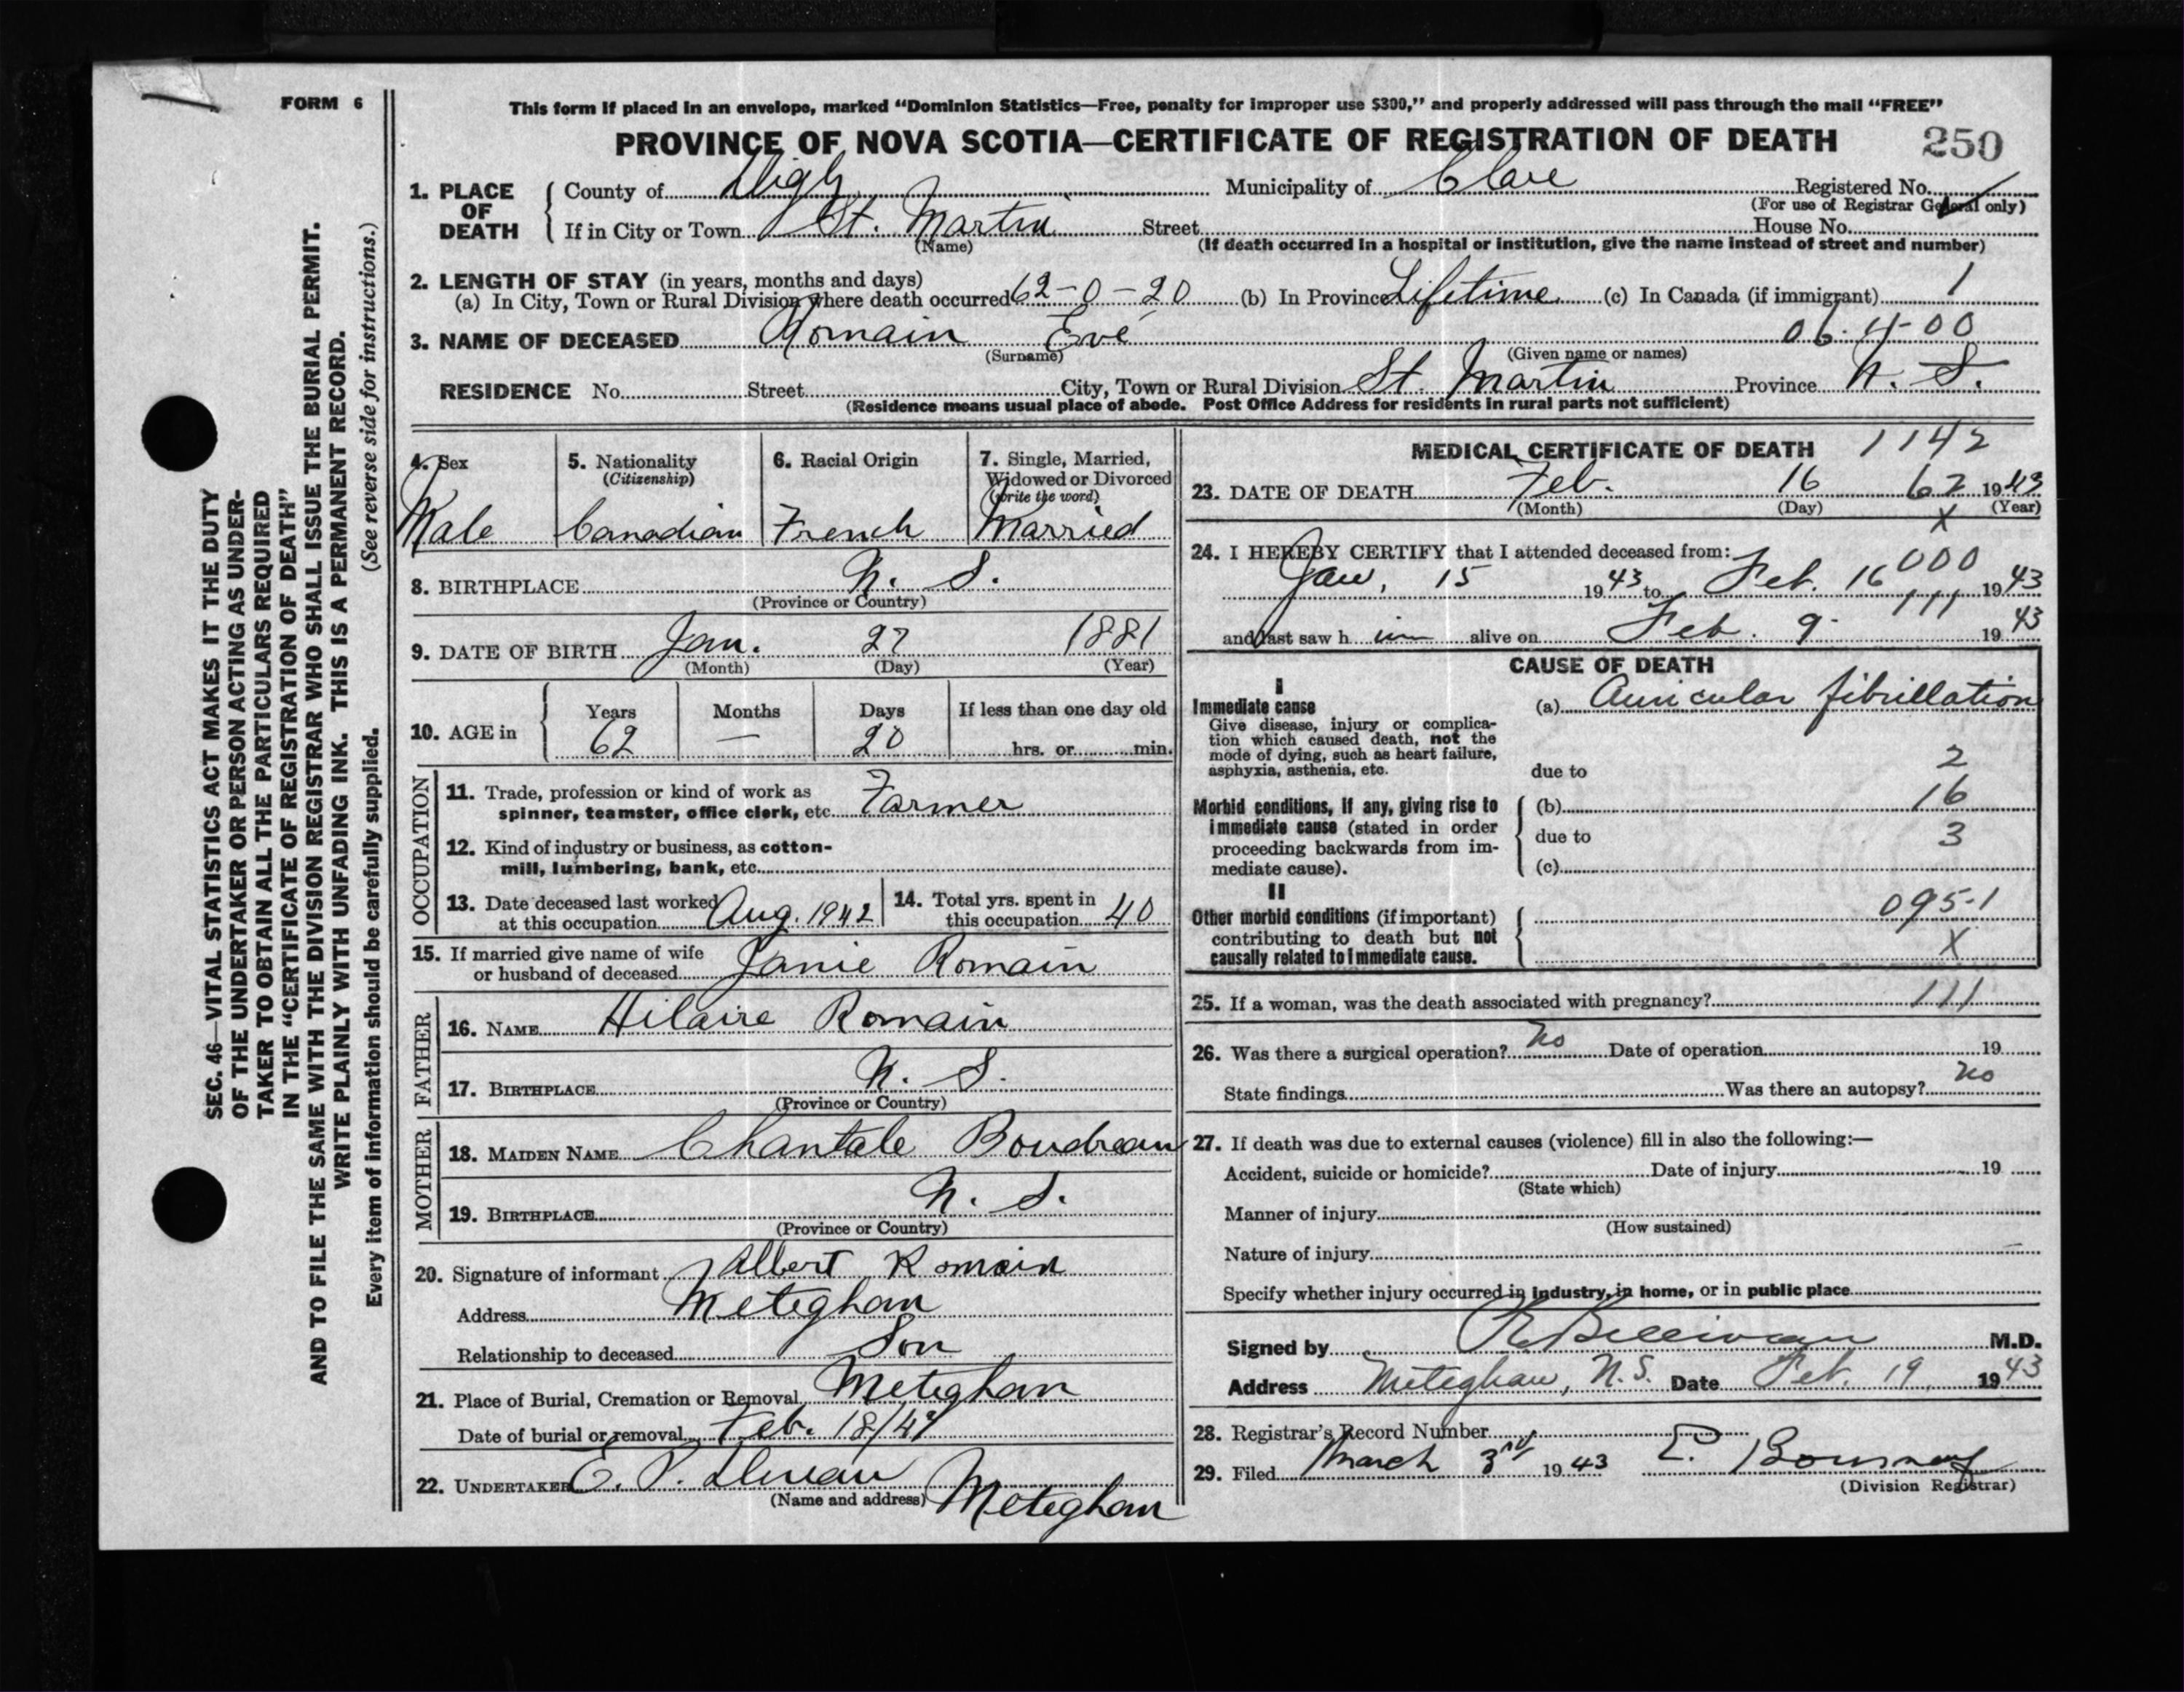 FORM 6
This form if placed in an envelope, marked “Dominion Statistics—Free, penalty for improper use $300,” and properly addressed will pass through the mail “FREE”
PROVINCE OF NOVA SCOTIA—CERTIFICATE OF REGISTRATION OF DEATH 250
1. PLACE OF DEATH
County of Digby Municipality of Clare Registered No.
(For use of Registrar General only)
If in City or Town St. Martin Street House No.
(Name) (If death occurred in a hospital or institution, give the name instead of street and number)
2. LENGTH OF STAY (in years, months and days)
(a) In City, Town or Rural Division where death occurred 62-0-20 (b) In Province Lifetime (c) In Canada (if immigrant) 1
06.4-00
3. NAME OF DECEASED Romain Evé
(Surname) (Given name or names)
RESIDENCE No. Street City, Town or Rural Division St. Martin Province N. S.
(Residence means usual place of abode. Post Office Address for residents in rural parts not sufficient)
4. Sex 5. Nationality 6. Racial Origin 7. Single, Married,
(Citizenship) Widowed or Divorced
(write the word)
Male Canadian French Married
8. BIRTHPLACE N. S.
(Province or Country)
9. DATE OF BIRTH Jan. 27 1881
(Month) (Day) (Year)
10. AGE in Years Months Days If less than one day old
62 — 20 hrs. or min.
OCCUPATION
11. Trade, profession or kind of work as
spinner, teamster, office clerk, etc. Farmer
12. Kind of industry or business, as cotton-
mill, lumbering, bank, etc.
13. Date deceased last worked
at this occupation Aug. 1942
14. Total yrs. spent in
this occupation 40
15. If married give name of wife
or husband of deceased Janie Romain
FATHER
16. NAME Hilaire Romain
17. BIRTHPLACE N. S.
(Province or Country)
MOTHER
18. MAIDEN NAME Chantale Boudreau
19. BIRTHPLACE N. S.
(Province or Country)
20. Signature of informant Albert Romain
Address Meteghan
Relationship to deceased Son
21. Place of Burial, Cremation or Removal Meteghan
Date of burial or removal Feb. 18/43
22. UNDERTAKER E. P. Meteghan
(Name and address)
MEDICAL CERTIFICATE OF DEATH 1142
23. DATE OF DEATH Feb. 16 62 1943
(Month) (Day) (Year)
X
24. I HEREBY CERTIFY that I attended deceased from:
000
Jan, 15 1943 to Feb. 16 1943
111
and last saw h im alive on Feb. 9 1943
CAUSE OF DEATH
I
Immediate cause
Give disease, injury or complica-
tion which caused death, not the
mode of dying, such as heart failure,
asphyxia, asthenia, etc.
(a) Auricular fibrillation
due to 2
Morbid conditions, if any, giving rise to
immediate cause (stated in order
proceeding backwards from im-
mediate cause).
(b) 16
due to 3
(c)
II
Other morbid conditions (if important)
contributing to death but not
causally related to immediate cause.
095-1
X
25. If a woman, was the death associated with pregnancy? 111
26. Was there a surgical operation? no Date of operation 19
State findings Was there an autopsy? no
27. If death was due to external causes (violence) fill in also the following:—
Accident, suicide or homicide? Date of injury 19
(State which)
Manner of injury
(How sustained)
Nature of injury
Specify whether injury occurred in industry, in home, or in public place
Signed by M.D.
Address Meteghan, N.S. Date Feb. 19, 1943
28. Registrar's Record Number
29. Filed March 3rd 1943 E.
(Division Registrar)
SEC. 46—VITAL STATISTICS ACT MAKES IT THE DUTY
OF THE UNDERTAKER OR PERSON ACTING AS UNDER-
TAKER TO OBTAIN ALL THE PARTICULARS REQUIRED
IN THE “CERTIFICATE OF REGISTRATION OF DEATH”
AND TO FILE THE SAME WITH THE DIVISION REGISTRAR WHO SHALL ISSUE THE BURIAL PERMIT.
WRITE PLAINLY WITH UNFADING INK. THIS IS A PERMANENT RECORD.
Every item of information should be carefully supplied. (See reverse side for instructions.)